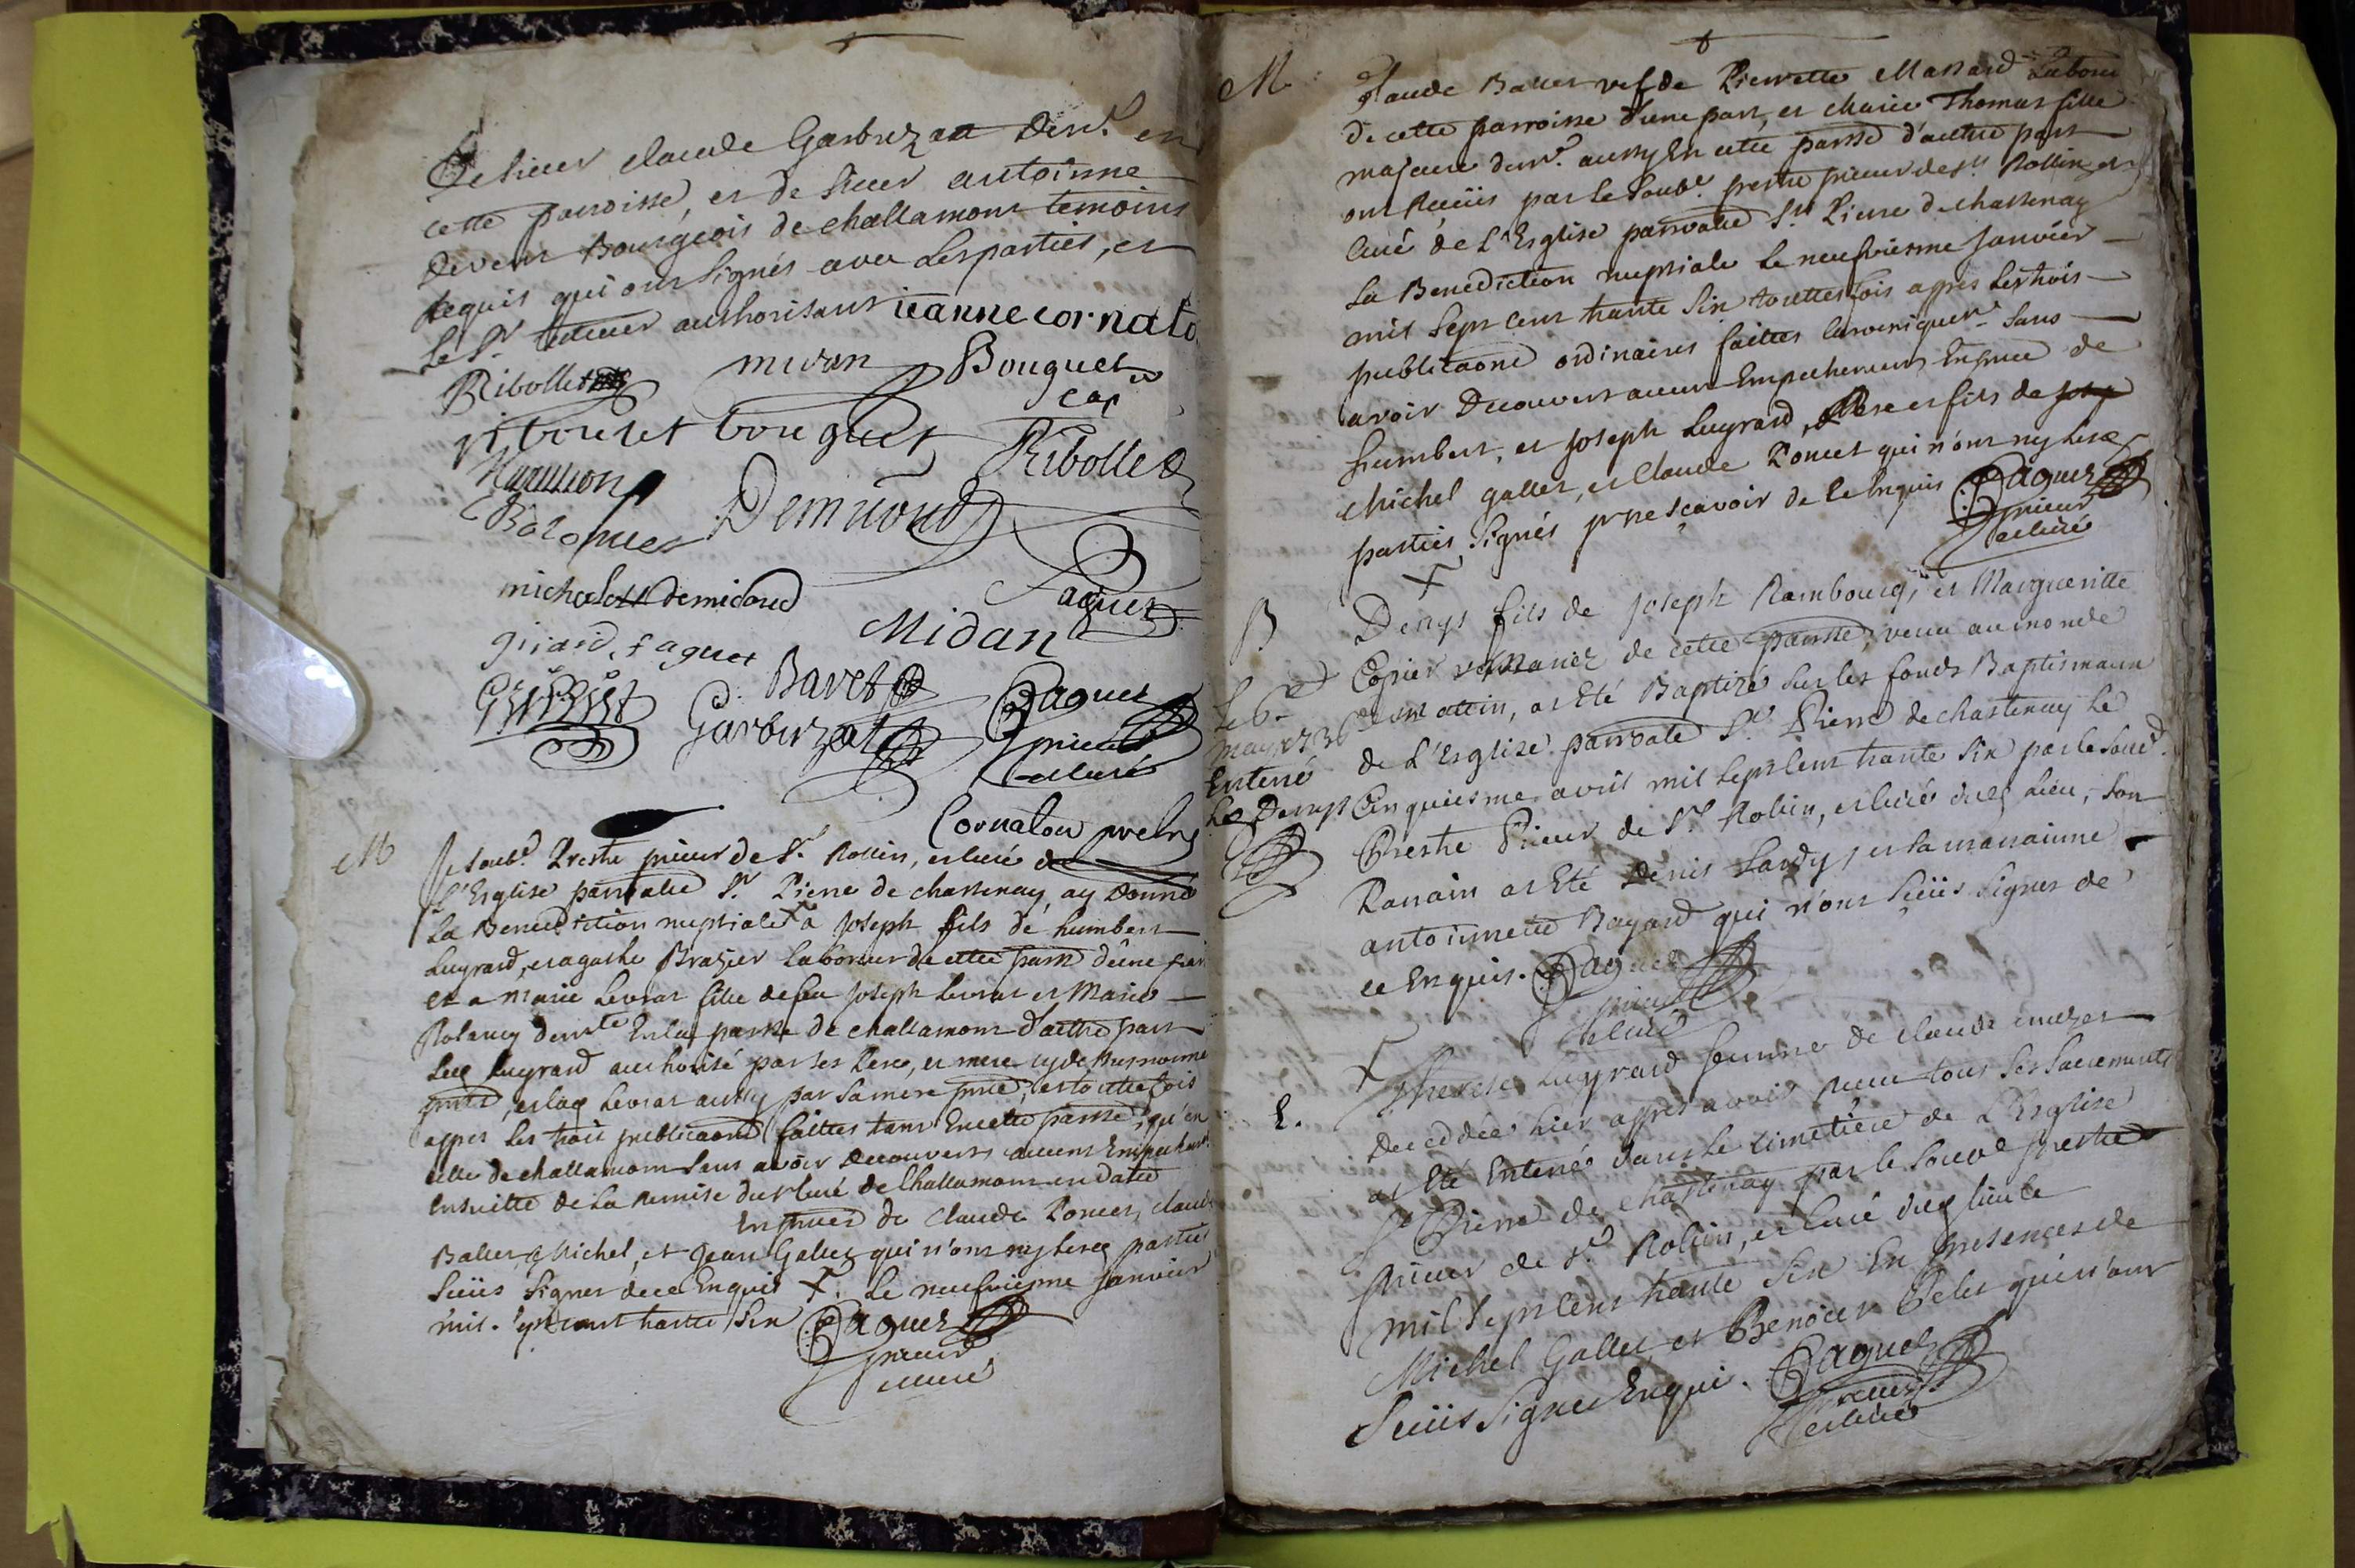 De sieur claude Garbuzat demt. en
cette parroisse, et de sieur antoinne
Devent Bourgeois de challamont temoins
requis qui ont signés avec les parties, et
le Sr. tuteur authorisant jeanne cornato
Ribollet midan Bouguet
cap
riboulet bouguet Ribollet
Demiout
michelet demidoud Paquet
girard. paquet Midan
Bavet
Garbuzat Paquet
prieur
et curé
Cornaton
M
Je soubd. Prestre prieur de St. Rollin, et curé de
l'Esglise parroalle St. Pierre de chastenay, ay donné
La Benediction nuptiale à Joseph fils de humbert
Lugrard, et agathe Brazier Laboreur de cette parsse d'une par
et a marie Levrat fille de feu Joseph Levrat et Marie
Rolancy demte. En la parsse de challamont d'autre part
authorisé par ses Pere, et mere
et laq Levrat aussy par sa mere et touttefois
appres les trois publicaons faittes tant En cette parsse, qu'en
celle de challamont sans avoir decouvert aucuns Empechemt.
Ensuitte de la remise du Sr Curé de Challamont en datte
En pnces de Claude Poncet, claude
Ballet, Michel, et Jean Gallet qui n'ont ny lesq parties
sciiës signer de ce Enquis +. le neufvieme janvier
mil. sept cent trante six Paquet
prieur
et curé
M
Claude Ballet vef de Pierrette Massard Labour
de cette parroisse d'une part, et Marie Thomas fille
majeure demt. aussy En cette parsse d'autre part
ont Reciiës par le soubd. prestre prieur de St. Rollin et
Curé de L'Esglise parroalle St. Pierre de chastenay
La Benediction nuptiale le neufviesme Janvier
mil sept cent trante six touttesfois appres les trois
publicaons ordinaires faittes Sans
avoir Decouvert aucuns Empechement En pnce de
humbert, et Joseph Lugrard, Pere et fils de
Michel gallet, et Claude Poncet qui n'ont ny lesq
parties signés pr ne sçavoir de ce Enquis Paquet
prieur
et curé
B
Denys fils de Joseph Rambourg, et Margueritte
Copier de cette parsse, venu au monde
matin, at Eté Baptizé sur les fonds Baptismaux
de L'Esglise parroale St. Pierre de chastenay le
Cinquiesme avril mil sept cent trante six par le soubd.
Prestre Prieur de St. Rollin, et curé dud Lieu, son
Parrain at Eté Denis Lardy, et la marrainne
antoinette Bayard qui n'ont sciiës signer de
ce Enquis. Paquet
prieur
et curé
Le 6e
may 1736
Enterré
Le Denys
E.
Therese Lugrard femme de claude
decedée hier appres avoir receu tous ses sacrements
at Eté Enterré dans le cimetiere de L'Esglise
St Pierre de chastenay par le soubd prestre
prieur de St. Rollin, et Curé dud lieu le
mil sept cent trante six En presences de
Michel Gallet et Benoict qui n'ont
sciiës signer Enqui. Paquet
prieur
et curé